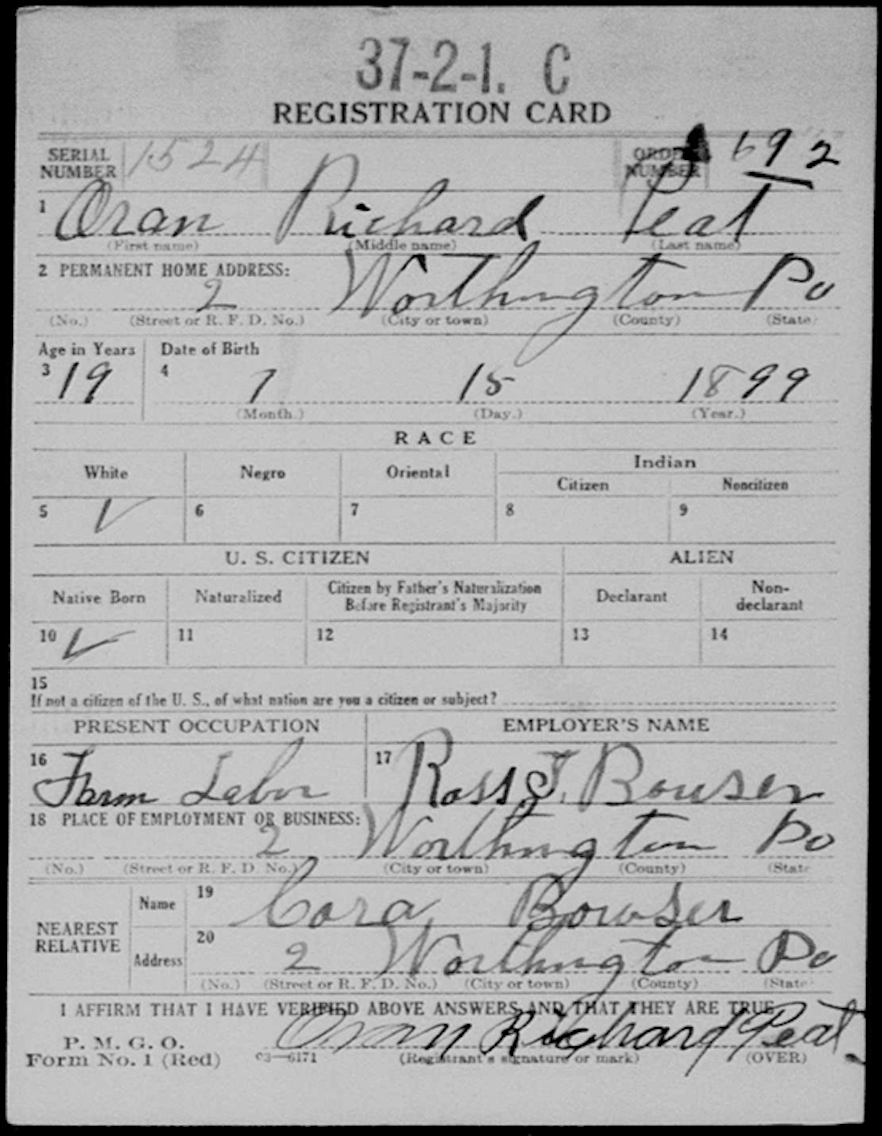 37-2-1. C
REGISTRATION CARD
SERIAL NUMBER 1524 ORDER NUMBER 692
1 Oran Richard Peat
(First name) (Middle name) (Last name)
2 PERMANENT HOME ADDRESS:
2 Worthington Pa
(No.) (Street or R. F. D. No.) (City or town) (County) (State)
Age in Years Date of Birth
3 19 4 7 15 1899
(Month.) (Day.) (Year.)
RACE
White Negro Oriental Indian
Citizen Noncitizen
5 ✓ 6 7 8 9
U. S. CITIZEN ALIEN
Native Born Naturalized Citizen by Father's Naturalization Before Registrant's Majority Declarant Non-declarant
10 ✓ 11 12 13 14
15
If not a citizen of the U. S., of what nation are you a citizen or subject?
PRESENT OCCUPATION EMPLOYER'S NAME
16 Farm Labor 17 Ross J. Bowser
18 PLACE OF EMPLOYMENT OR BUSINESS:
2 Worthington Pa
(No.) (Street or R. F. D. No.) (City or town) (County) (State)
NEAREST RELATIVE Name 19 Cora Bowser
Address 20 2 Worthington Pa
(No.) (Street or R. F. D. No.) (City or town) (County) (State)
I AFFIRM THAT I HAVE VERIFIED ABOVE ANSWERS AND THAT THEY ARE TRUE
P. M. G. O.
Form No. 1 (Red) 03—6171 Oran Richard Peat
(Registrant's signature or mark) (OVER)